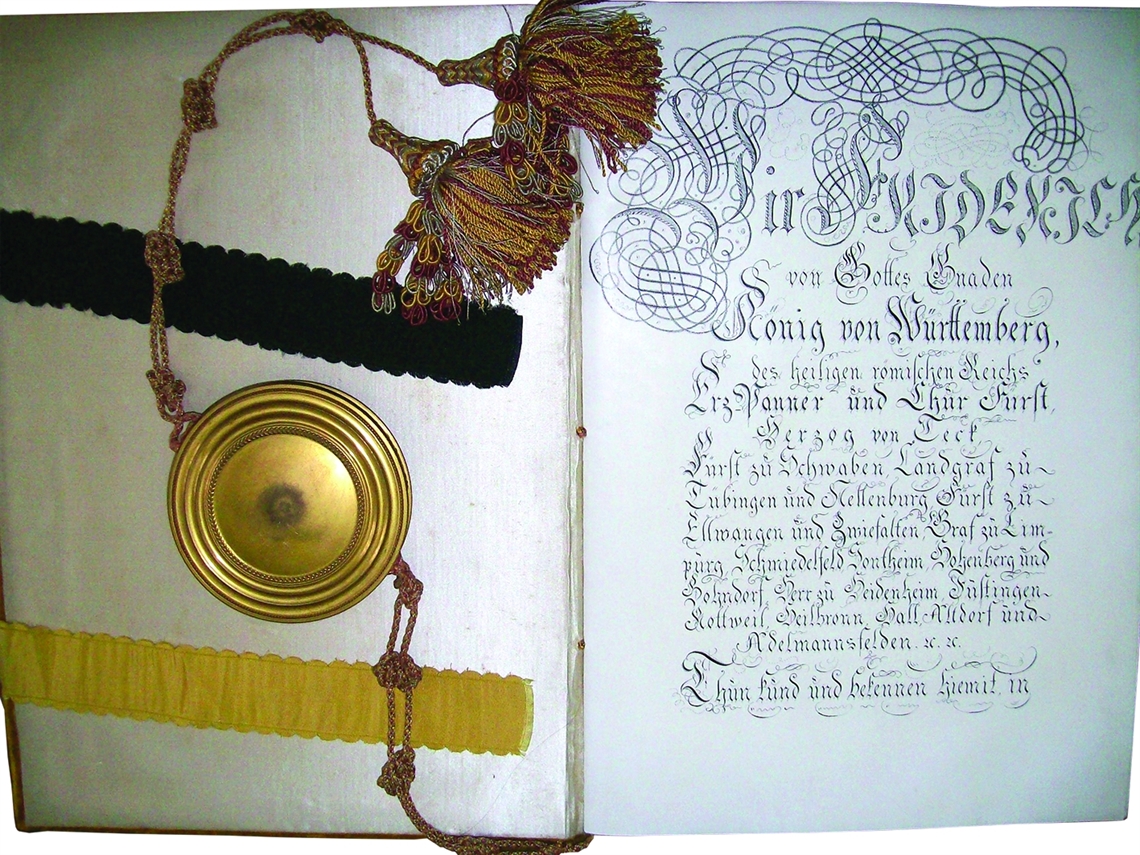 Wir FRIDERICH
von Gottes Gnaden
König von Württemberg,
des heiligen römischen Reichs
Erz-Panner und Chur Fürst,
Herzog von Teck
Fürst zu Schwaben, Landgraf zu
Tubingen und Nellenburg, Fürst zu
Ellwangen und Zwiefalten, Graf zu Lim-
purg, Schmiedelfeld Sontheim, Hohenberg und
Bohndorf, Herr zu Heidenheim, Justingen
Rottweil, Heilbronn, Hall, Altdorf und
Adelmannsfelden. ꝛc. ꝛc.
Thun kund und bekennen hiemit, in